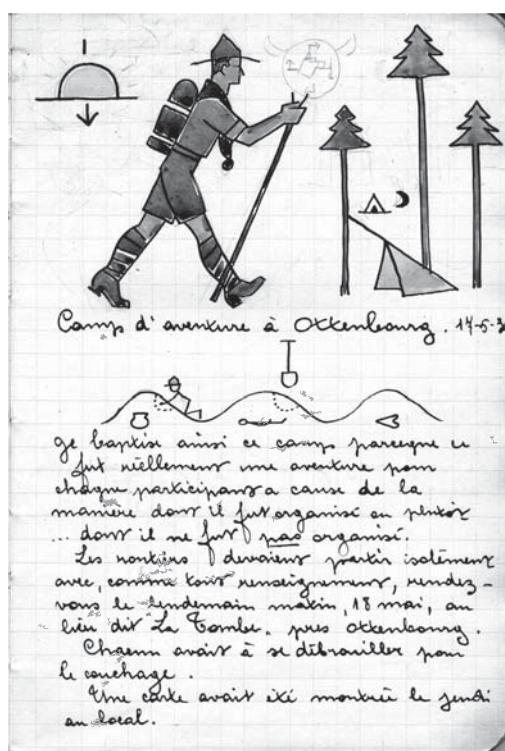 Camp d'aventure à Ottenbourg. 17-5-3
Je baptise ainsi ce camp parceque ce
fut réellement une aventure pour
chaque participant a cause de la
manière dont il fut organisé ou plutôt
... dont il ne fut pas organisé.
Les routiers devaient partir isolément
avec, comme tout renseignement, rendez-
vous le lendemain matin, 18 mai, au
lieu dit La Tombe. près Ottenbourg.
Chacun avait à se débrouiller pour
le couchage.
Une carte avait été montrée le jeudi
au local.